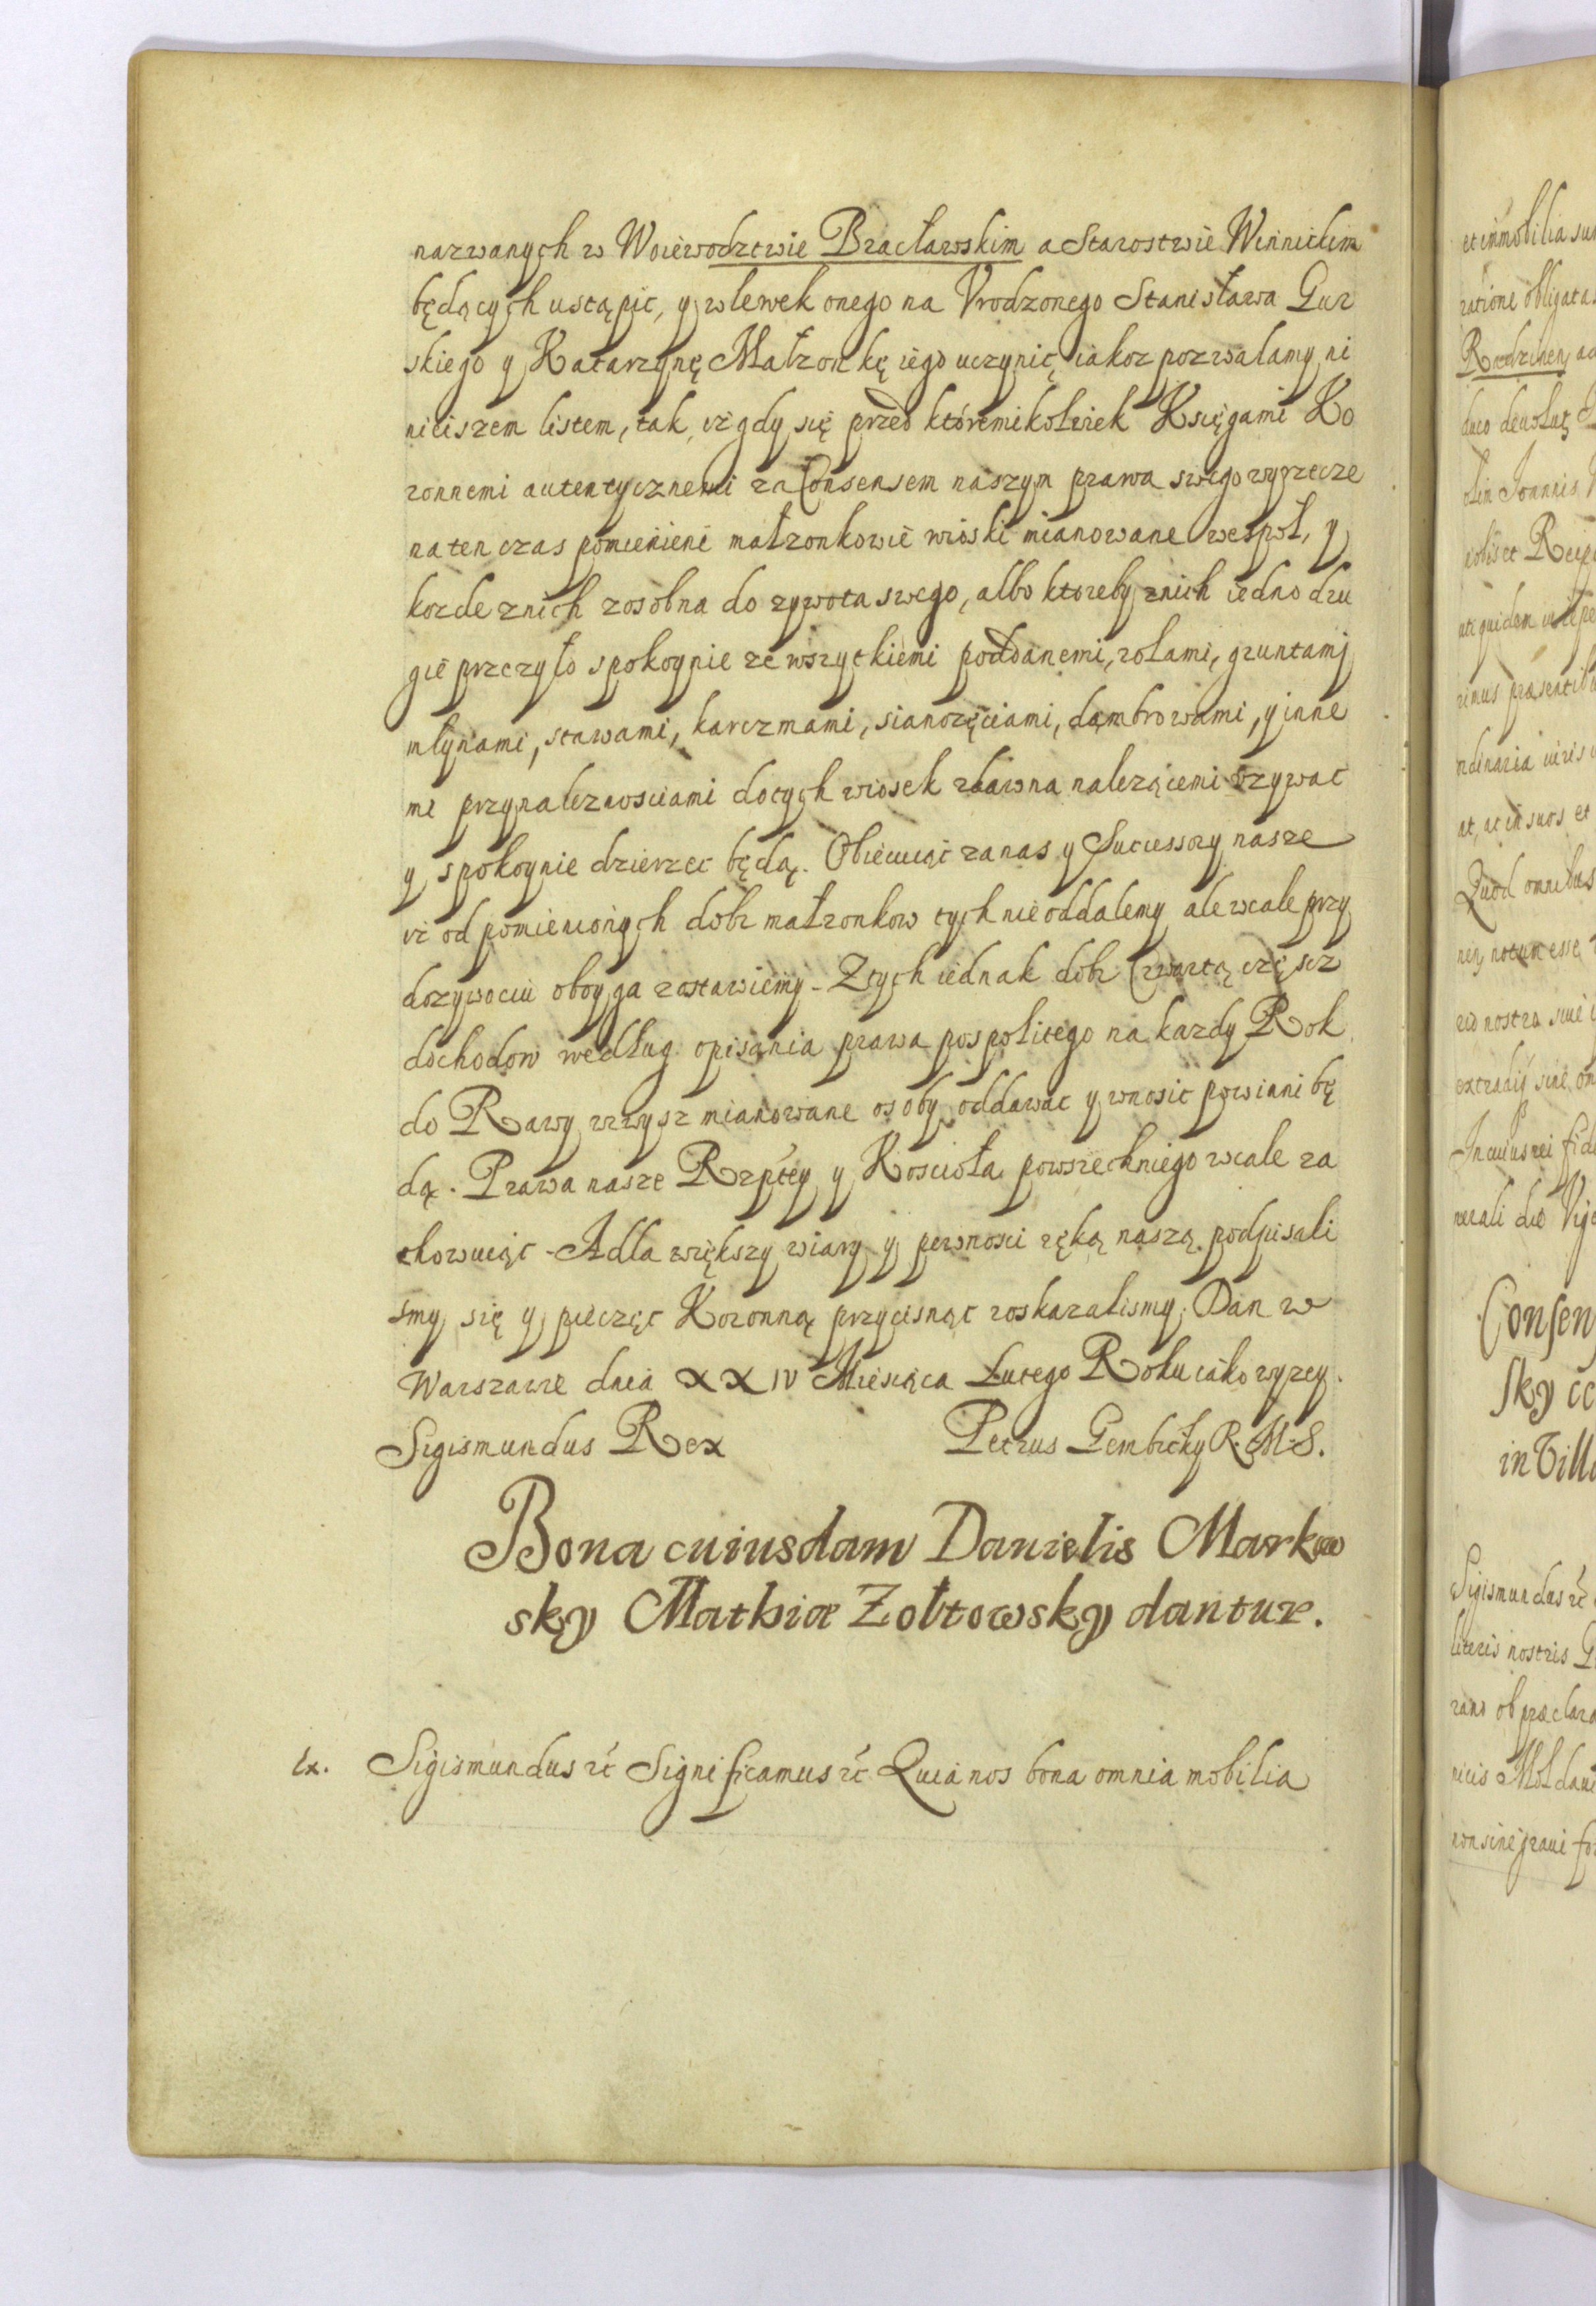 nazwanych w Woiewodztwie Bracławskim a Starostwie Winnickim
będących ustąpić, y wlewek onego na Vrodzonego Stanisława Gur
skiego y Katarzynę Małzonkę iego uczynić, iakoz pozwalamy ni
nieiszem listem, tak, iż gdy się przed któremikolwiek Księgami Ko
ronnemi autentycznemi za Consensem naszym prawa swego wyrzecze
na ten czas pomienieni małzonkowie wioski mianowane wespoł, y
kozde znich zosobna do zywota swego, albo ktoreby znich iedno dru
gie przezyło spokoynie ze wszytkiemi poddanemi, rolami, gruntamj
młynami, stawami, karczmami, sianozęciami, dąmbrowami, y inne
mi przynaleznosciami dotych wiosek zdawna nalezącemi vzywac
y spokoynie dzierzec będą. Obiecuiąc zanas y Successory nasze
iż od pomienionych dobr małzonkow tych nie oddalemy ale wcale przy
dozywociu oboyga zostawiemy - Ztych iednak dobr Czwartą częscz
dochodow według opisania prawa pospolitego na kazdy Rok
do Rawy wzwysz mianowane osoby oddawac y wnosic powinni bę
dą. Prawa nasze Rzptey y Kosciołа powszechniego wcale za
chowuiąc - A dla większy wiary y pewnosci ręką naszą podpisali
smy się y pieczęc Koronną przycisnąc roskazalismy. Dan w
Warszawie dnia XXIV Miesiąca Lutego Roku iako wyzey.
Sigismundus Rex Petrus Gembicky R. M. S.
Bona cuiusdam Danielis Markow
sky Mathiæ Zołtowsky dantur.
Ex. Sigismundus ꝛc Significamus ꝛc Quia nos bona omnia mobilia
et immobilia
ratione obligata
Rodzinen
duco
olim Joannis
nobis et
rimus præsentib
ordinaria iuris
at, ac in suos et
Quod omnibus
notum esse
nostra siue
In cuius rei
Consen
sky
in Vill
Sigismundus ꝛc
literis nostris
rano ob præclara